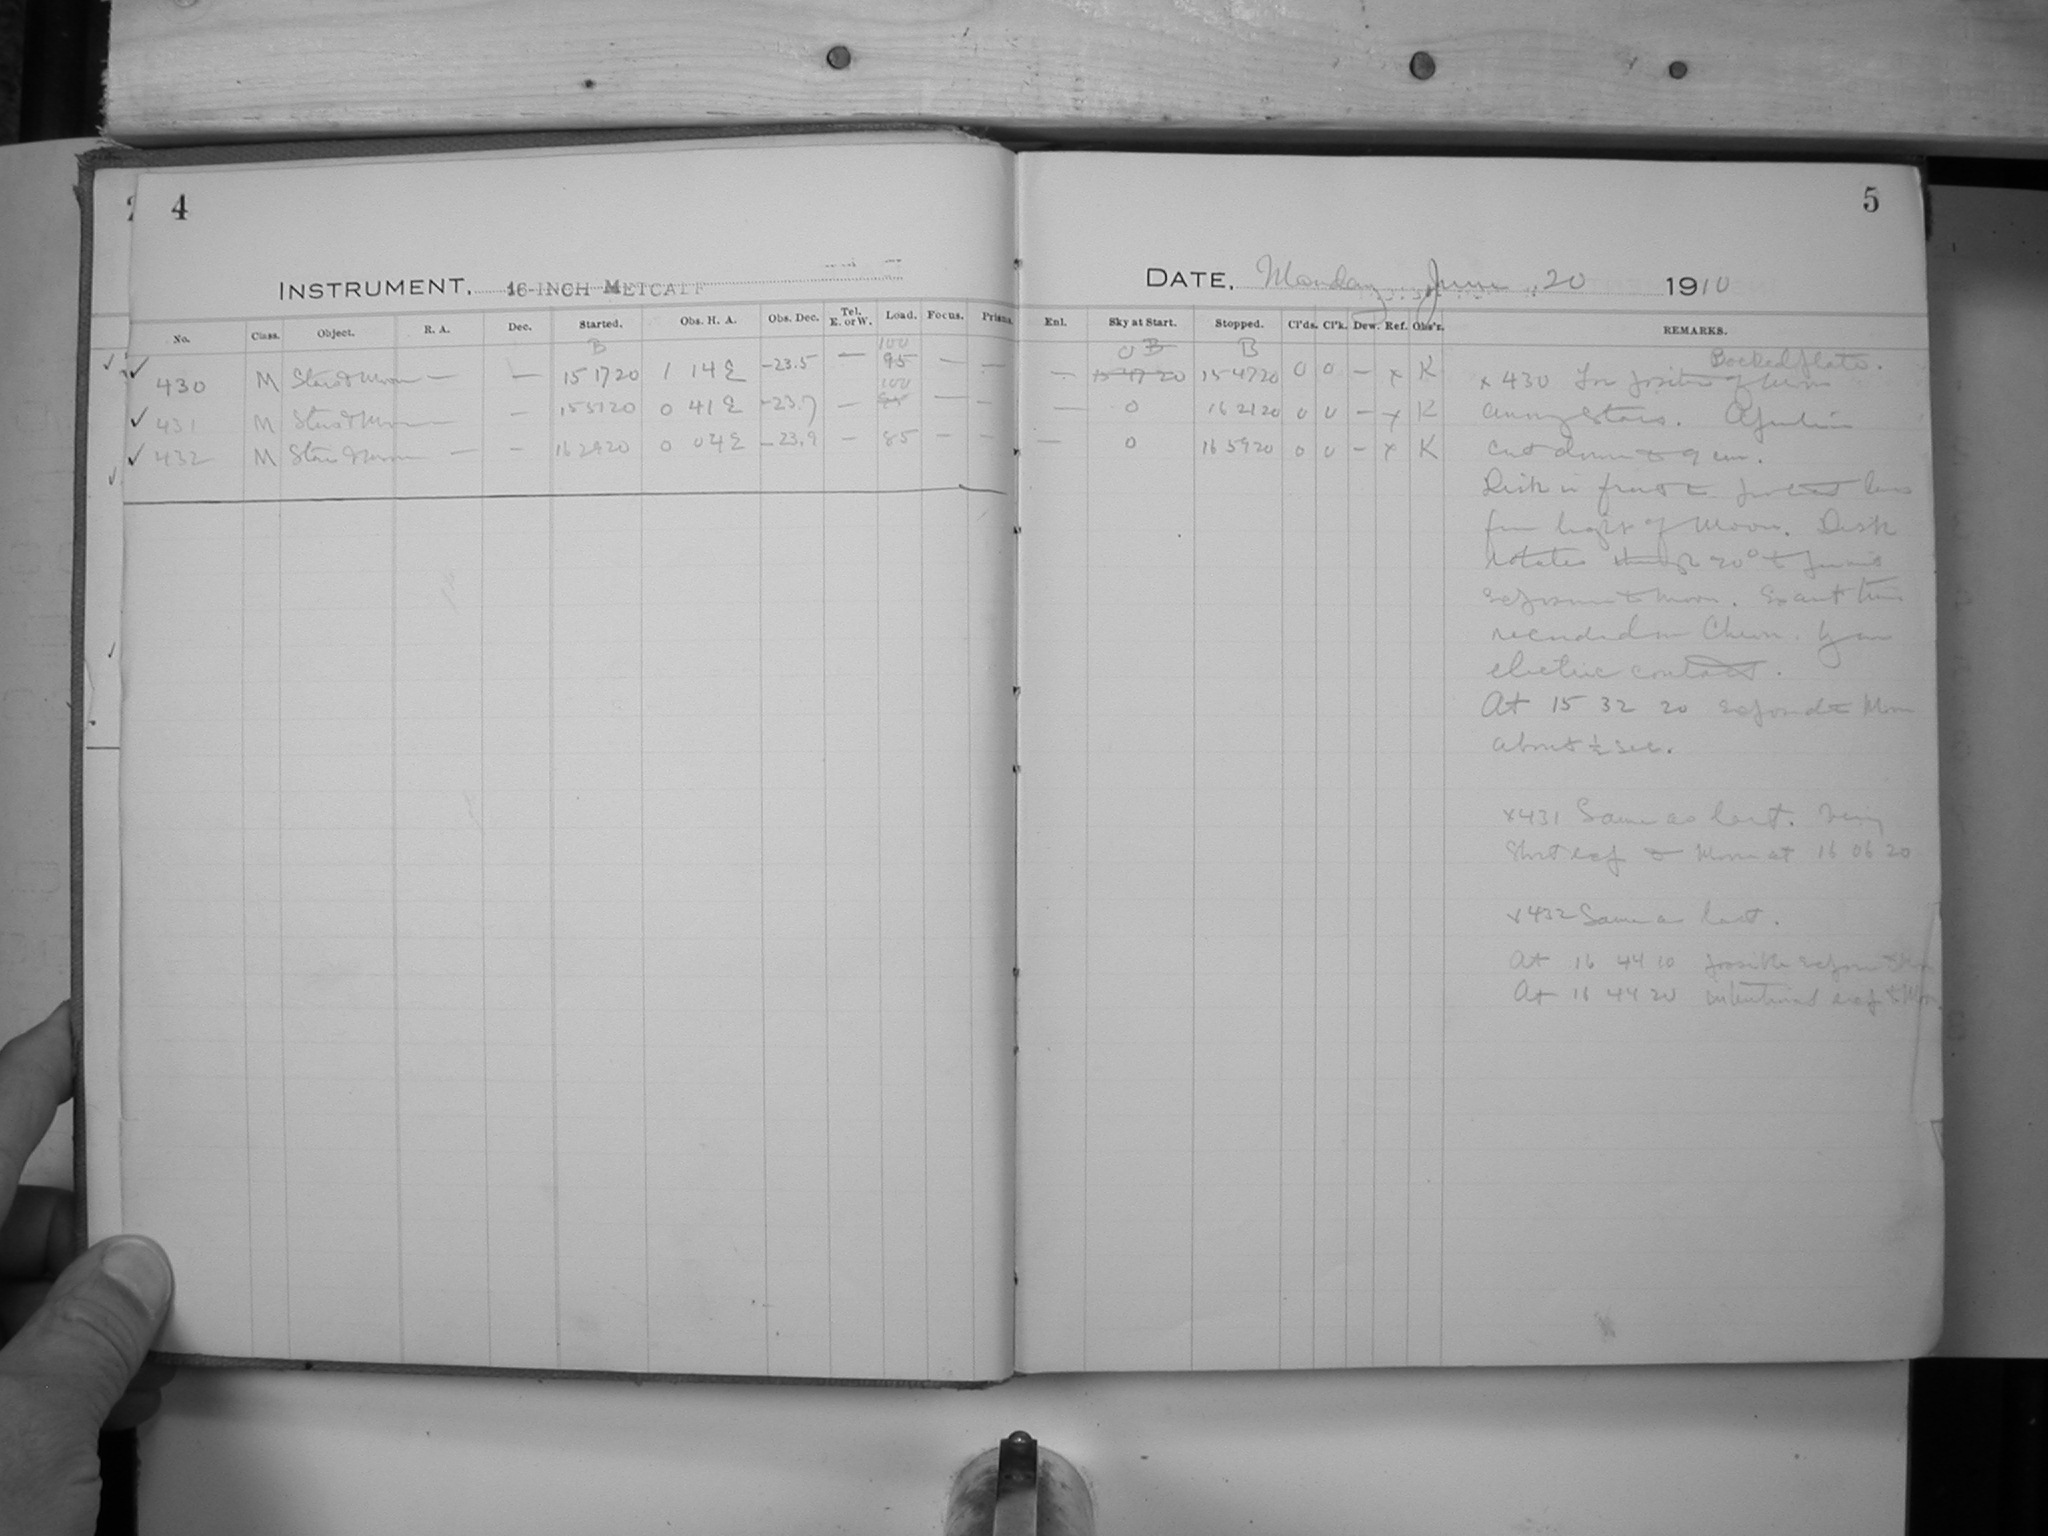 4
INSTRUMENT, 16-INCH METCALF
No. Class. Object. R. A. Dec. Started. Obs. H. A. Obs. Dec. Tel. E. or W. Load. Focus. Prisms.
B 100
430 M Stars & Moon — — 15 17 20 1 14 E -23.5 — 95 — —
100
431 M Stars & Moon — — 15 51 20 0 41 E -23.7 — — —
432 M Stars & Moon — — 16 29 20 0 04 E -23.9 — 85 — —
5
DATE, Monday June 20 1910
Enl. Sky at Start. Stopped. Cl'ds. Cl'k. Dew. Ref. Obs'r. REMARKS.
0 B B
— 15 47 20 15 47 20 0 0 — x K
— 0 16 21 20 0 0 — x K
— 0 16 59 20 0 0 — x K
Backed plate.
x 430 For position of Moon
among stars. Aperture
cut down to 9 in.
Disk in front to protect lens
from light of Moon. Disk
rotates through 90° to permit
exposure to Moon. Exact time
recorded on Chron. by an
electric contact.
At 15 32 20 exposed to Moon
about ½ sec.
x431 Same as last. Very
Short exp to Moon at 16 06 20
x432 Same as last.
At 16 44 10 possible exposure to Moon
At 16 44 20 intentional exp to Moon.